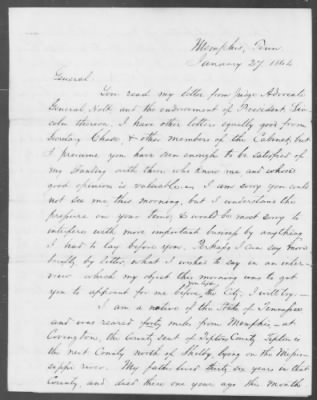 Memphis, Tenn
January 27 1864
General
You read my letter from Judge Advocate
General Holt and the endorsement of President Lin-
coln thereon. I have other letters equally good from
Secretary Chase, & other members of the Cabinet, but
I presume you have seen enough to be satisfied of
my standing with those who know me and whose
good opinion is valuable. I am sorry you could
not see me, this morning, but I understand the
pressure on your time, & would be most sorry to
interfere with more important business by anything
I had to lay before you. Perhaps I can say more
briefly by letter, what I wished to say in an inter-
view which my object this morning was to get
you to appoint for me before you left the City, I will try.—
I am a native of the State of Tennessee
and was reared forty miles from Memphis — at
Covington, the County seat of Tipton County. Tipton is
the next County north of Shelby lying on the Missis-
sippi river. My father lived thirty six years in that
County, and died there one year ago this month